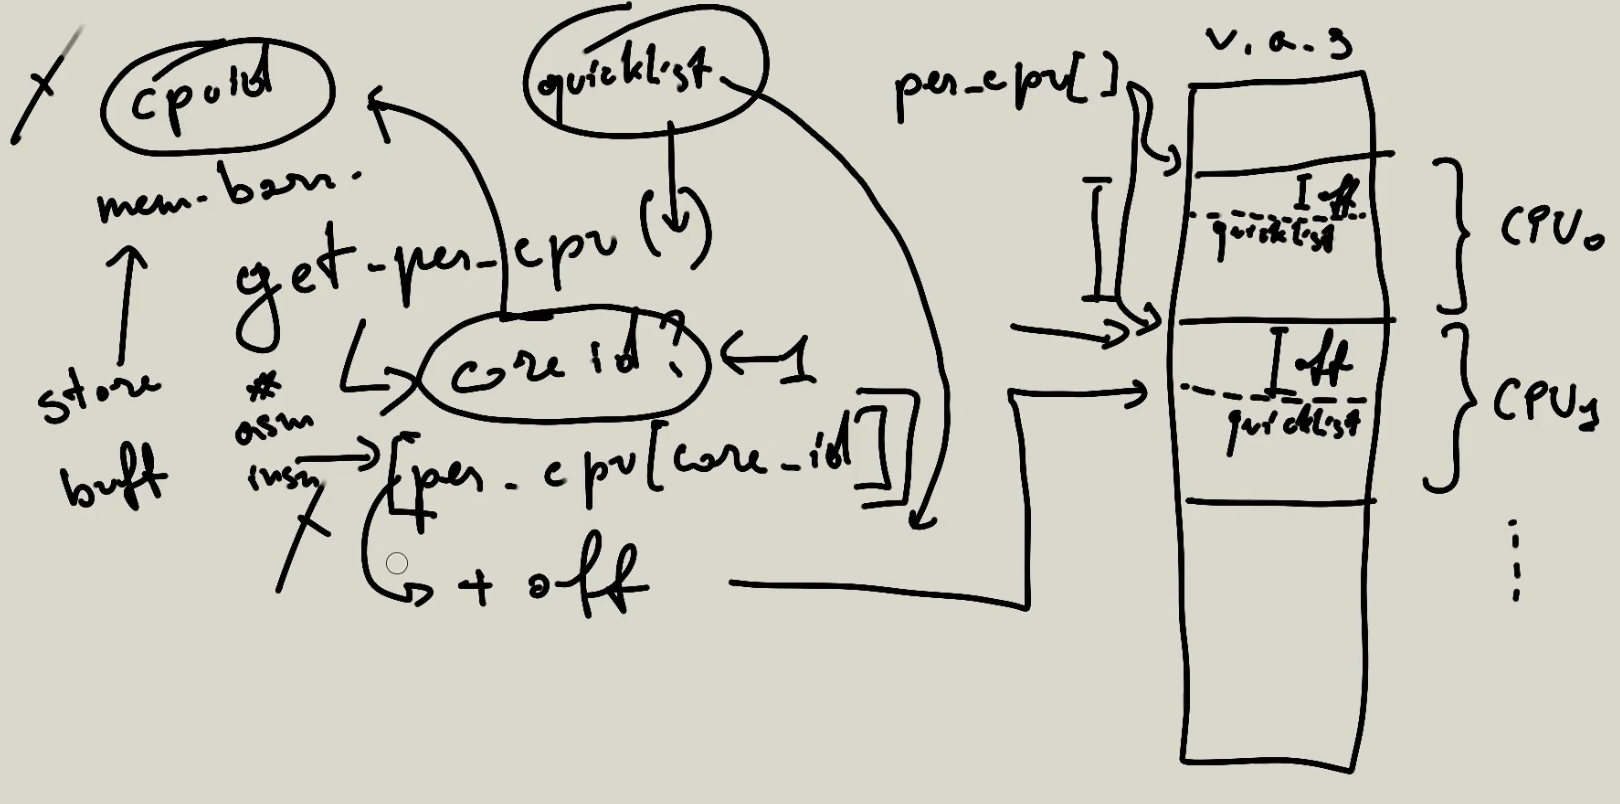 cpuid
mem. barr.
store
buff
quicklist
get_per_cpu ( )
core id?
1
*
asm
insn
[per_cpu[core_id]]
+ off
per_cpu[]
v.a.s
off
quicklist
CPU0
off
quicklist
CPU1